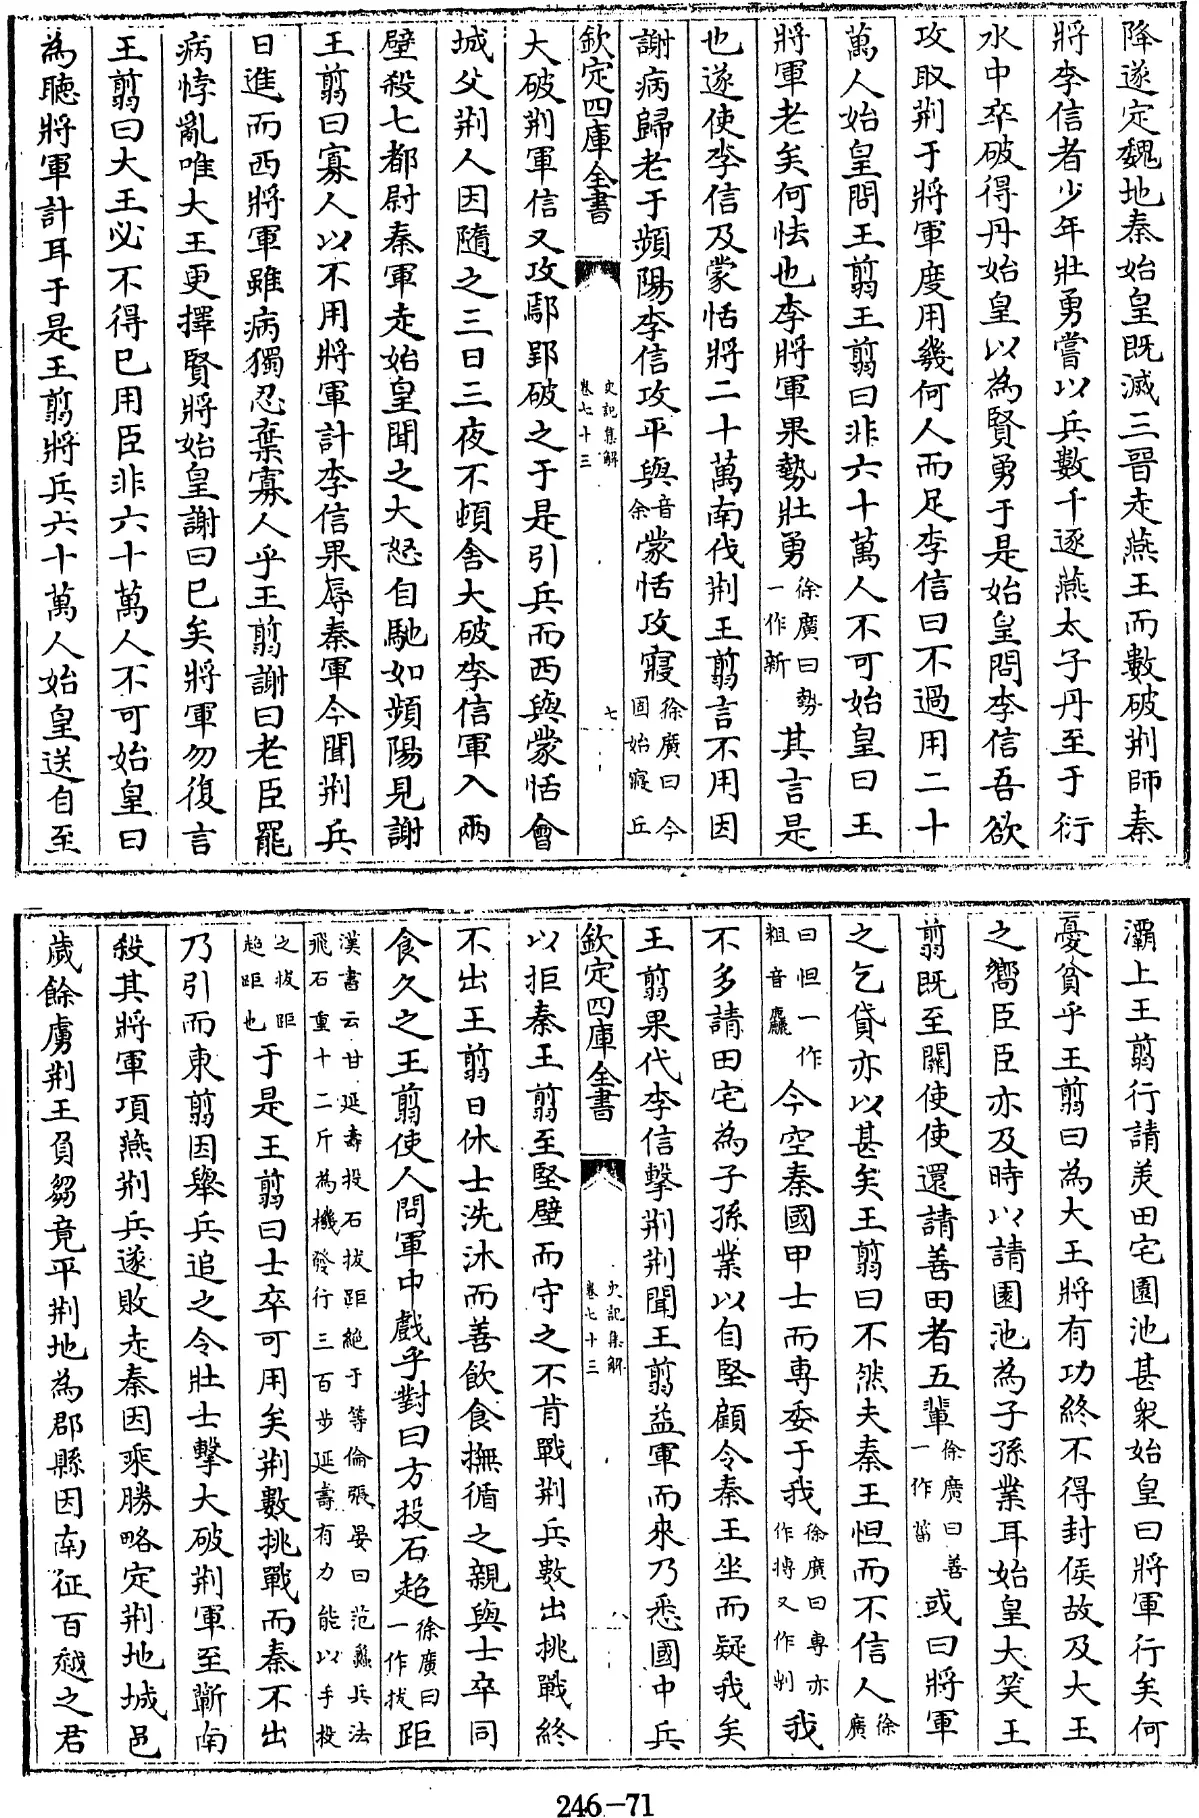 降遂定魏地秦始皇既滅三晉走燕王而數破荆師秦
將李信者少年壯勇嘗以兵數千逐燕太子丹至于衍
水中卒破得丹始皇以為賢勇于是始皇問李信吾欲
攻取荆于將軍度用幾何人而足李信曰不過用二十
萬人始皇問王翦王翦曰非六十萬人不可始皇曰王
將軍老矣何怯也李將軍果勢壯勇徐廣曰勢一作新其言是
也遂使李信及蒙恬將二十萬南伐荆王翦言不用因
謝病歸老于頻陽李信攻平與音余蒙恬攻寢徐廣曰今固始寢丘
欽定四庫全書 史記集解卷七十三 七
大破荆軍信又攻鄢郢破之于是引兵而西與蒙恬會
城父荆人因隨之三日三夜不頓舍大破李信軍入兩
壁殺七都尉秦軍走始皇聞之大怒自馳如頻陽見謝
王翦曰寡人以不用將軍計李信果辱秦軍今聞荆兵
日進而西將軍雖病獨忍棄寡人乎王翦謝曰老臣罷
病悖亂唯大王更擇賢將始皇謝曰已矣將軍勿復言
王翦曰大王必不得已用臣非六十萬人不可始皇曰
為聽將軍計耳于是王翦將兵六十萬人始皇送自至
灞上王翦行請美田宅園池甚衆始皇曰將軍行矣何
憂貧乎王翦曰為大王將有功終不得封侯故及大王
之嚮臣臣亦及時以請園池為子孫業耳始皇大笑王
翦既至關使使還請善田者五輩徐廣曰善一作菑或曰將軍
之乞貸亦以甚矣王翦曰不然夫秦王怚而不信人徐廣
曰怚一作粗音麤今空秦國甲士而專委于我徐廣曰專亦作摶又作剸我
不多請田宅為子孫業以自堅顧令秦王坐而疑我矣
王翦果代李信擊荆荆聞王翦益軍而來乃悉國中兵
欽定四庫全書 史記集解卷七十三 八
以拒秦王翦至堅壁而守之不肯戰荆兵數出挑戰終
不出王翦日休士洗沐而善飲食撫循之親與士卒同
食久之王翦使人問軍中戲乎對曰方投石超徐廣曰一作拔距
漢書云甘延壽投石拔距絶于等倫張晏曰范蠡兵法飛石重十二斤為機發行三百步延壽有力能以手投
之拔距超距也于是王翦曰士卒可用矣荆數挑戰而秦不出
乃引而東翦因舉兵追之令壯士擊大破荆軍至蘄南
殺其將軍項燕荆兵遂敗走秦因乘勝略定荆地城邑
歲餘虜荆王負芻竟平荆地為郡縣因南征百越之君
246-71